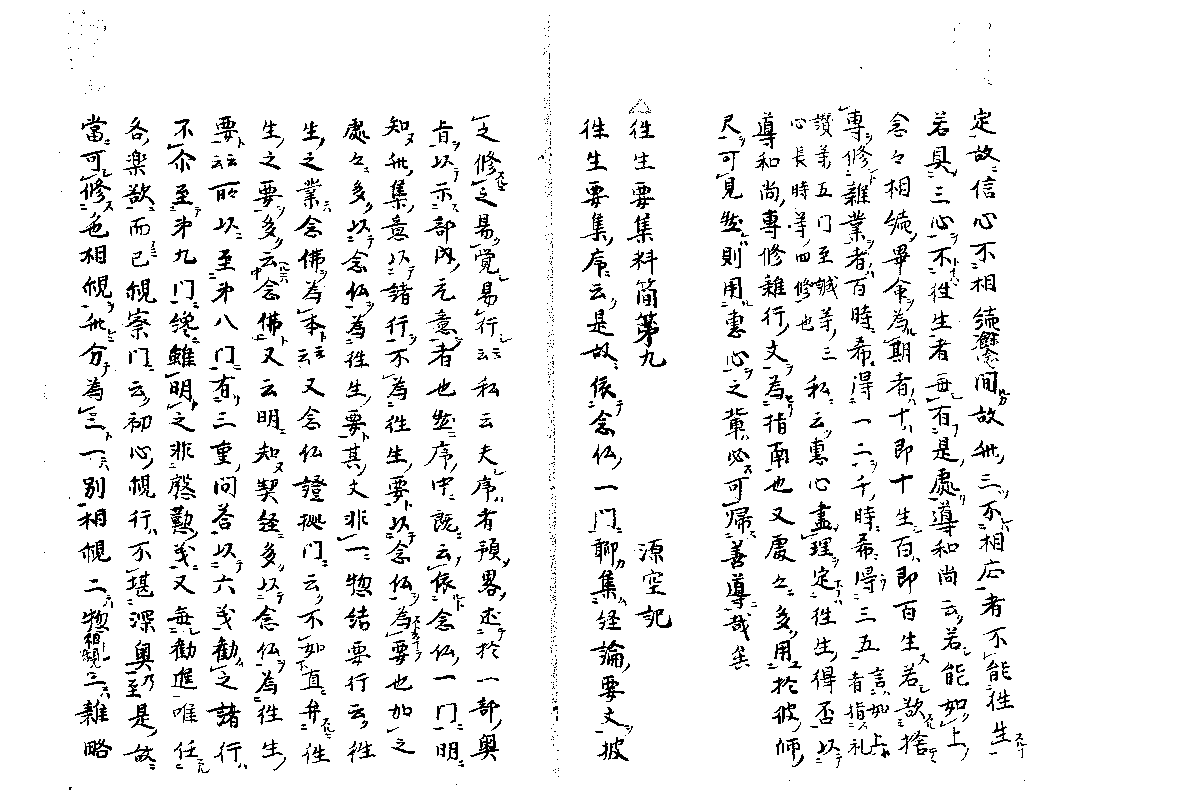 定故信心不相続餘間故此三不相応者不能往生
若具三心不往生者無有是処導和尚云若能如上
念々相続畢命為期者十即十生百即百生若欲捨
専修雑業者百時希得一二千時希得三五言如上者指礼
讃等五門至誠等三心長時等四修也私云恵心尽理定往生得否以
導和尚専修雑行文為指南也又処々多用於彼師
尺可見然則用恵心之輩必可帰善導哉矣
△往生要集料簡第九　源空記
往生要集序云是故依念仏一門聊集経論要文披
之修之易覚易行云云私云夫序者預略述於一部奥
旨以示部内元意者也然序中既云依念仏一門明
知此集意以諸行不為往生要以念仏為要也加之
処々多以念仏為往生要其文非一惣結要行云往
生之業念佛為本云云又念仏證拠門云不如直弁往
生之要多云念佛又云明知契経多以念仏為往生
要云云所以至第八門有三重問答以六義勧之諸行
不尓至第九門纔雖明之非慇懃義又無勧進唯任
各楽欲而已観察門云初心観行不堪深奥乃至是故
當可修色相観此分為三一別相観二惣相観三雑略